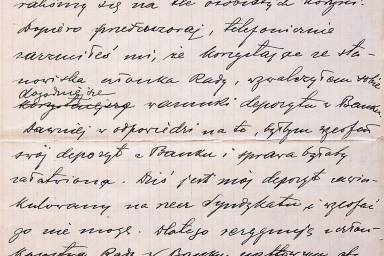 raliśmy się na tle osobistych
Dopiero przedwczoraj, telefonicznie
zarzuciłeś mi, że korzystając ze sta-
nowiska członka Rady, wywalczyłem sobie
dogodniejsze
korzystniejsze warunki depozytu w Banku.
Dawniej w odpowiedzi na to, byłbym wycofał
swój depozyt z Banku i sprawa byłaby
załatwiona. Dziś jest mój depozyt zawin-
kulowany na rzecz Syndykatu i wycofać
go nie mogę. Dlatego rezygnuję z człon-
kostwa Rady w Banku